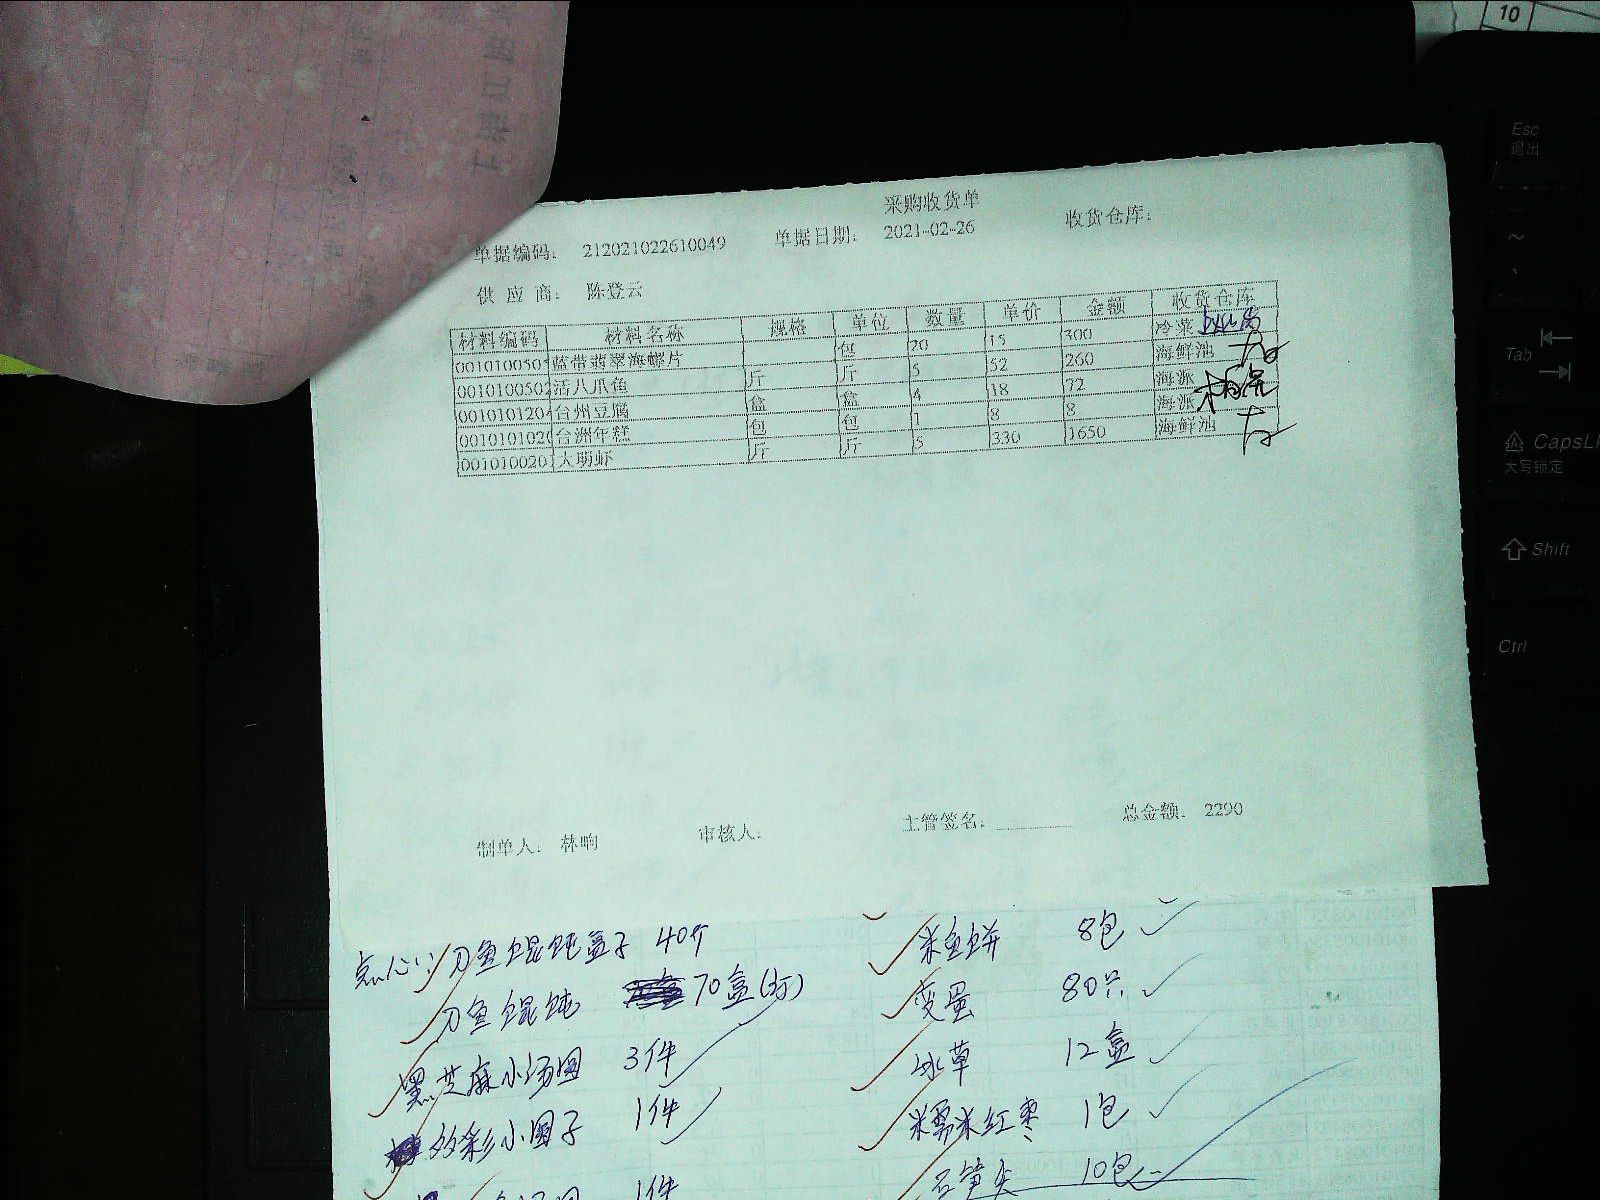 采购收货单
单据编码： 212021022610049 单据日期： 2021-02-26 收货仓库：
供 应 商： 陈登云
材料编码 材料名称 规格 单位 数量 单价 金额 收货仓库
00101005 蓝带翡翠海螺片 包 20 15 300 冷菜
0010100502 活八爪鱼 斤 斤 5 52 260 海鲜池
001010120 台州豆腐 盒 盒 4 18 72 海派
0010101020 台洲年糕 包 包 1 8 8 海派
001010020 大明虾 斤 斤 5 330 1650 海鲜池
制单人： 林响 审核人： 主管签名： 总金额： 2290
点心：刀鱼馄饨盒子 40个
刀鱼馄饨 70盒
黑芝麻小汤圆 3件
多彩小圆子 1件
1件
米鱼饼 8包
变蛋 80只
冰草 12盒
糯米红枣 1包
石笋尖 10包
10
Esc
退出
~
Tab
CapsL
大写锁定
Shift
Ctrl